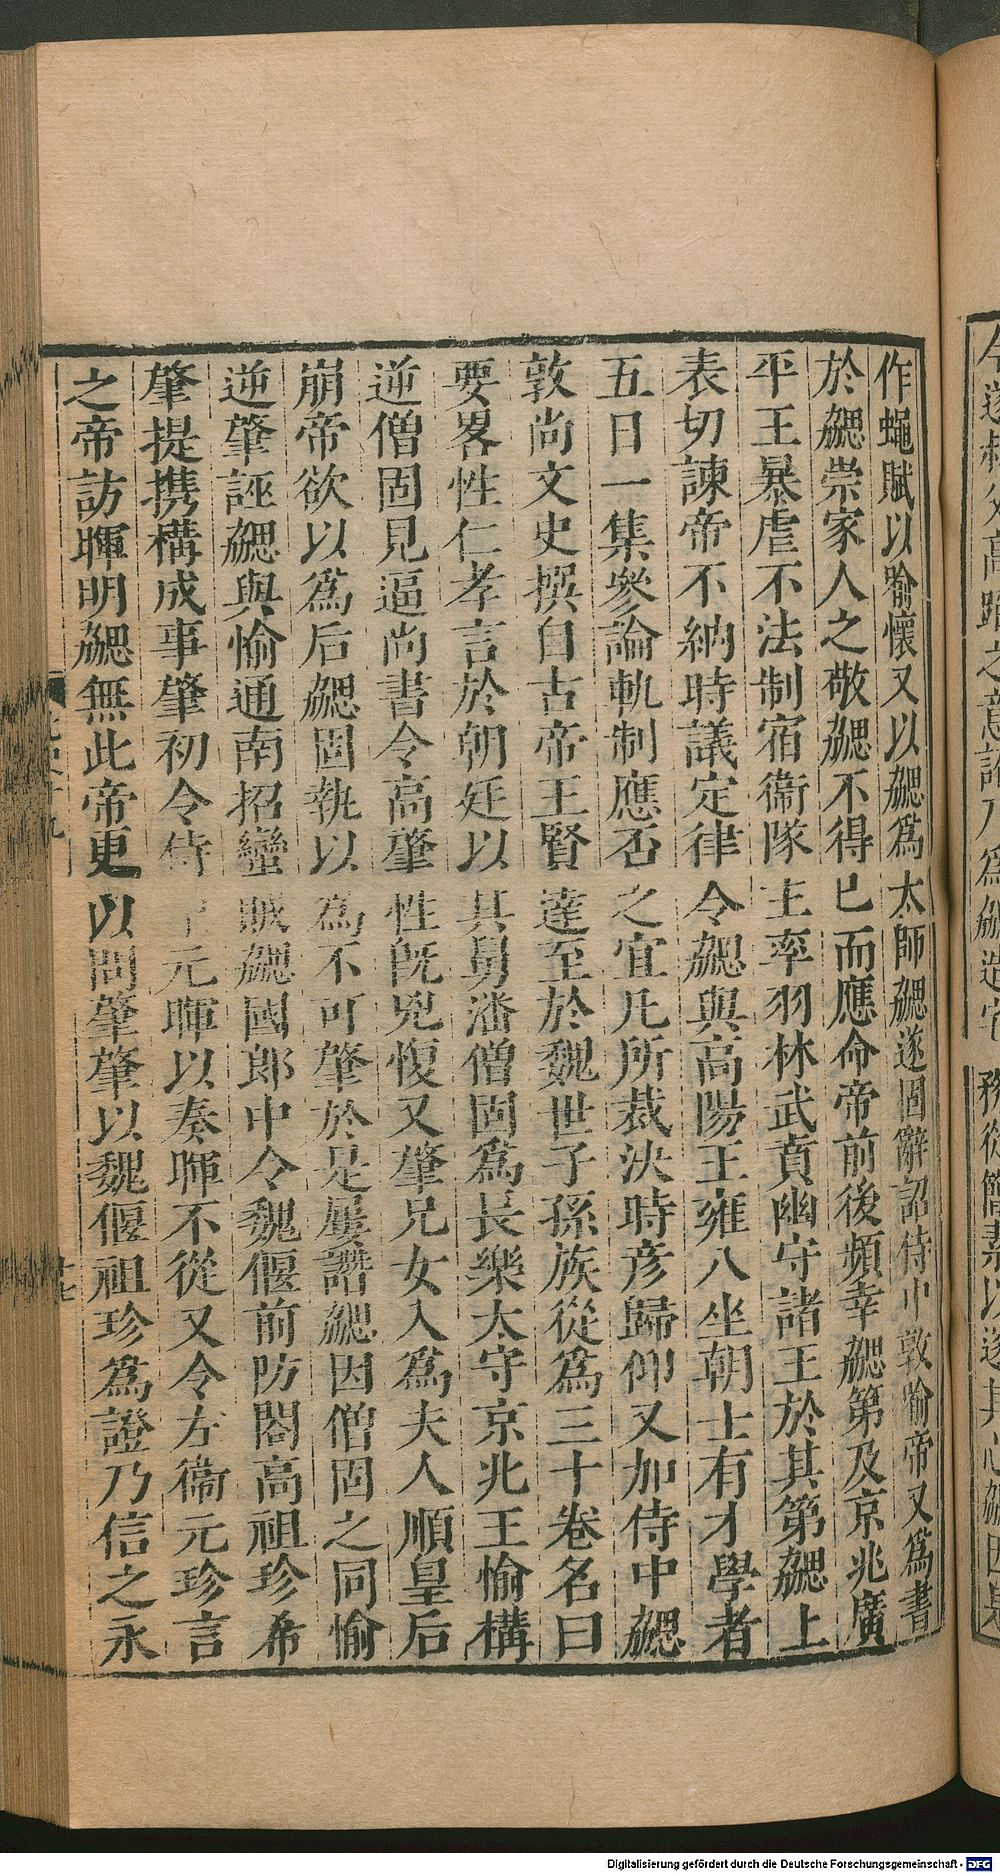 今遂叔父高蹈之意詔乃為勰造宅務從簡素以遂其心勰因是
作蠅賦以喻懷又以勰爲太師勰遂固辭詔侍中敦喻帝又爲書
於勰崇家人之敬勰不得已而應命帝前後頻幸勰第及京兆廣
平王暴虐不法制宿衞隊主率羽林武賁幽守諸王於其第勰上
表切諫帝不納時議定律令勰與高陽王雍八坐朝士有才學者
五日一集參論軌制應否之宜凡所裁決時彥歸仰又加侍中勰
敦尚文史撰自古帝王賢達至於魏世子孫族從爲三十卷名曰
要畧性仁孝言於朝廷以其舅潘僧固爲長樂太守京兆王愉構
逆僧固見逼尚書令高肇性旣兇愎又肇兄女入爲夫人順皇后
崩帝欲以爲后勰固執以爲不可肇於是屢譖勰因僧固之同愉
逆肇誣勰與愉通南招蠻賊勰國郎中令魏偃前防閤高祖珍希
肇提携構成事肇初令侍中元暉以奏暉不從又令左衞元珍言
之帝訪暉明勰無此帝更以問肇肇以魏偃祖珍爲證乃信之永
Digitalisierung gefördert durch die Deutsche Forschungsgemeinschaft - DFG